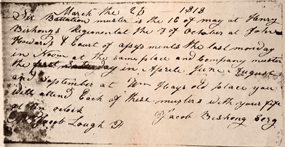 March the 25 1818
Sir Battalion muster is the 16 of may at Henry
Bishongs Regimental the 3 of October at John
Court of apeyments the last monday
in Novm at the same place and Company muster
the first day in Aprile June August
and September at Wm Hays old place you
will attend Each of these musters with your fife
at oclock
Jacob Lough Jacob Bishong Corg